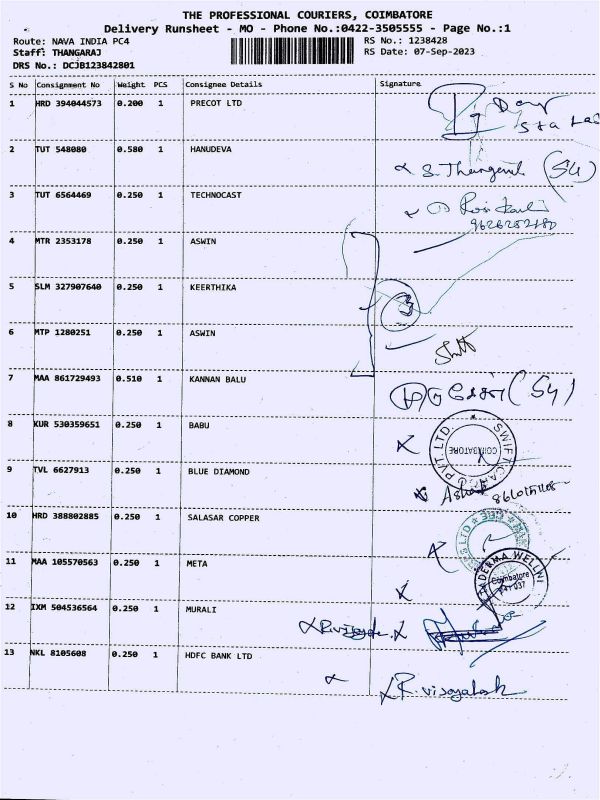 THE PROFESSIONAL COURIERS, COIMBATORE
Delivery Runsheet - MO - Phone No.:0422-3505555 - Page No.:1
Route: NAVA INDIA PC4
RS No.: 1238428
Staff: THANGARAJ
RS Date: 07-Sep-2023
DRS No.: DCJB123842801
S No Consignment No Weight PCS Consignee Details Signature
1 HRD 394044573 0.200 1 PRECOT LTD
2 TUT 548080 0.580 1 HANUDEVA
(S4)
3 TUT 6564469 0.250 1 TECHNOCAST
4 MTR 2353178 0.250 1 ASWIN
5 SLM 327907640 0.250 1 KEERTHIKA
3
6 MTP 1280251 0.250 1 ASWIN
7 MAA 861729493 0.510 1 KANNAN BALU
(S4)
8 KUR 530359651 0.250 1 BABU
COIMBATORE
9 TVL 6627913 0.250 1 BLUE DIAMOND
10 HRD 388802885 0.250 1 SALASAR COPPER
11 MAA 105570563 0.250 1 META
Coimbatore
12 IXM 504536564 0.250 1 MURALI
13 NKL 8105608 0.250 1 HDFC BANK LTD